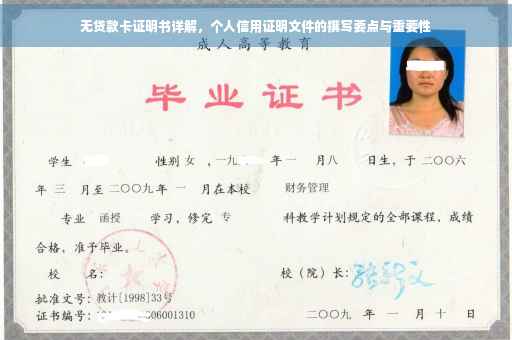 无贷款卡证明书详解，个人信用证明文件的撰写要点与重要性
成人高等教育
毕业证书
学生 性别 女 ，一九 年 一 月 八 日生，于 二〇〇六
年 三 月至 二〇〇九 年 一 月在本校 财务管理
专业 函授 学习，修完 专 科教学计划规定的全部课程，成绩
合格，准予毕业。
校 名： 校（院）长：
批准文号：教计[1998]33号
证书编号： 06001310 二〇〇九 年 一 月 十 日